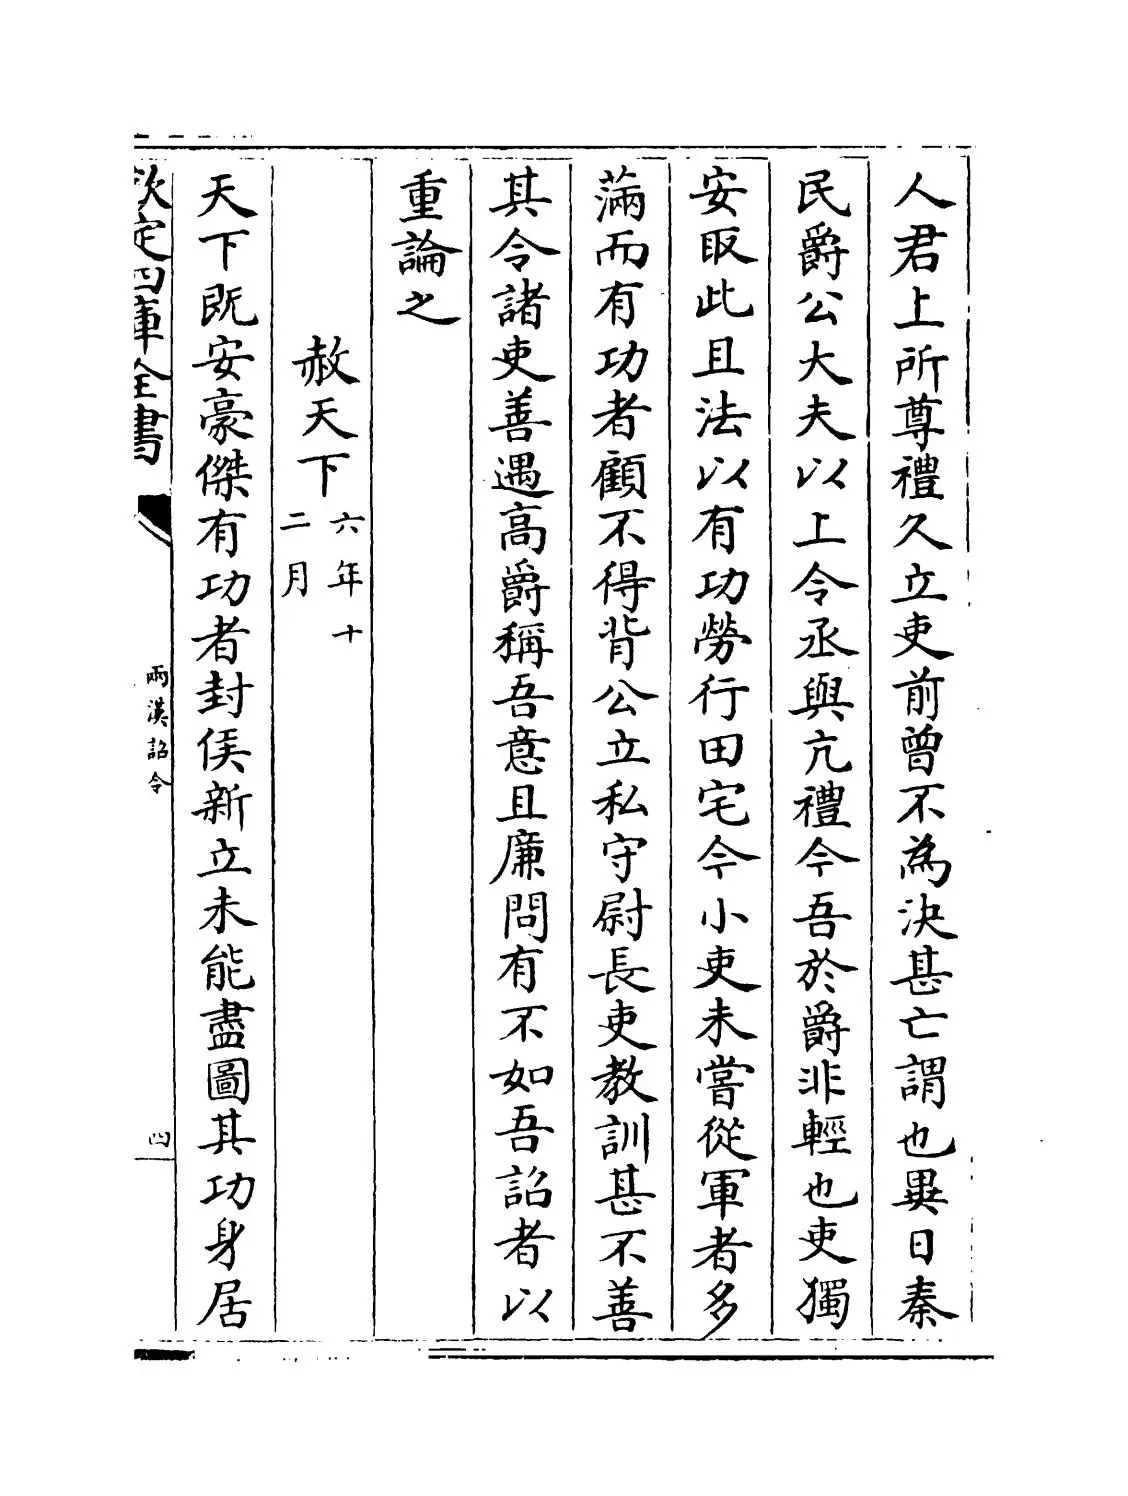 人君上所尊禮久立吏前曾不為決甚亡謂也異日秦
民爵公大夫以上令丞與亢禮今吾於爵非輕也吏獨
安取此且法以有功勞行田宅今小吏未嘗從軍者多
滿而有功者顧不得背公立私守尉長吏教訓甚不善
其令諸吏善遇高爵稱吾意且廉問有不如吾詔者以
重論之
赦天下
六年十
二月
天下既安豪傑有功者封侯新立未能盡圖其功身居
欽定四庫全書
兩漢詔令
四